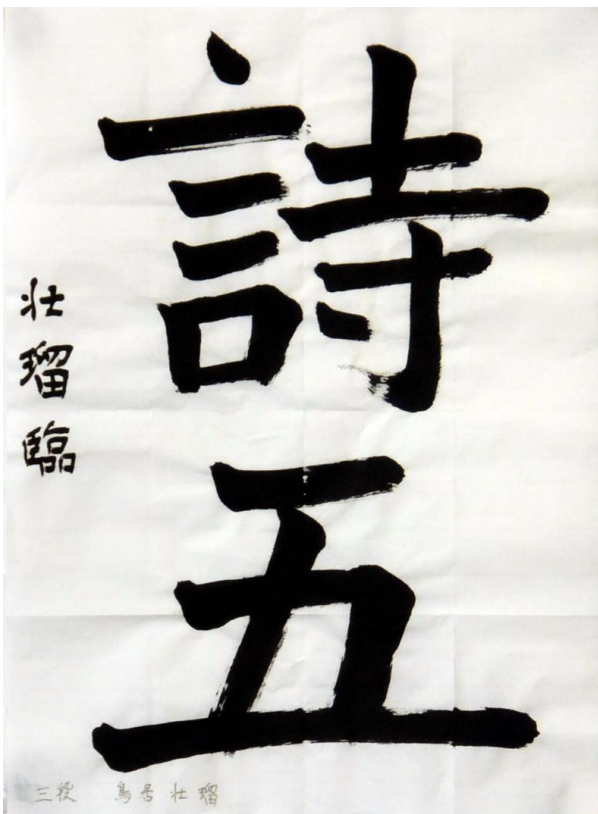 詩五
壮瑠臨
三段 鳥居壮瑠